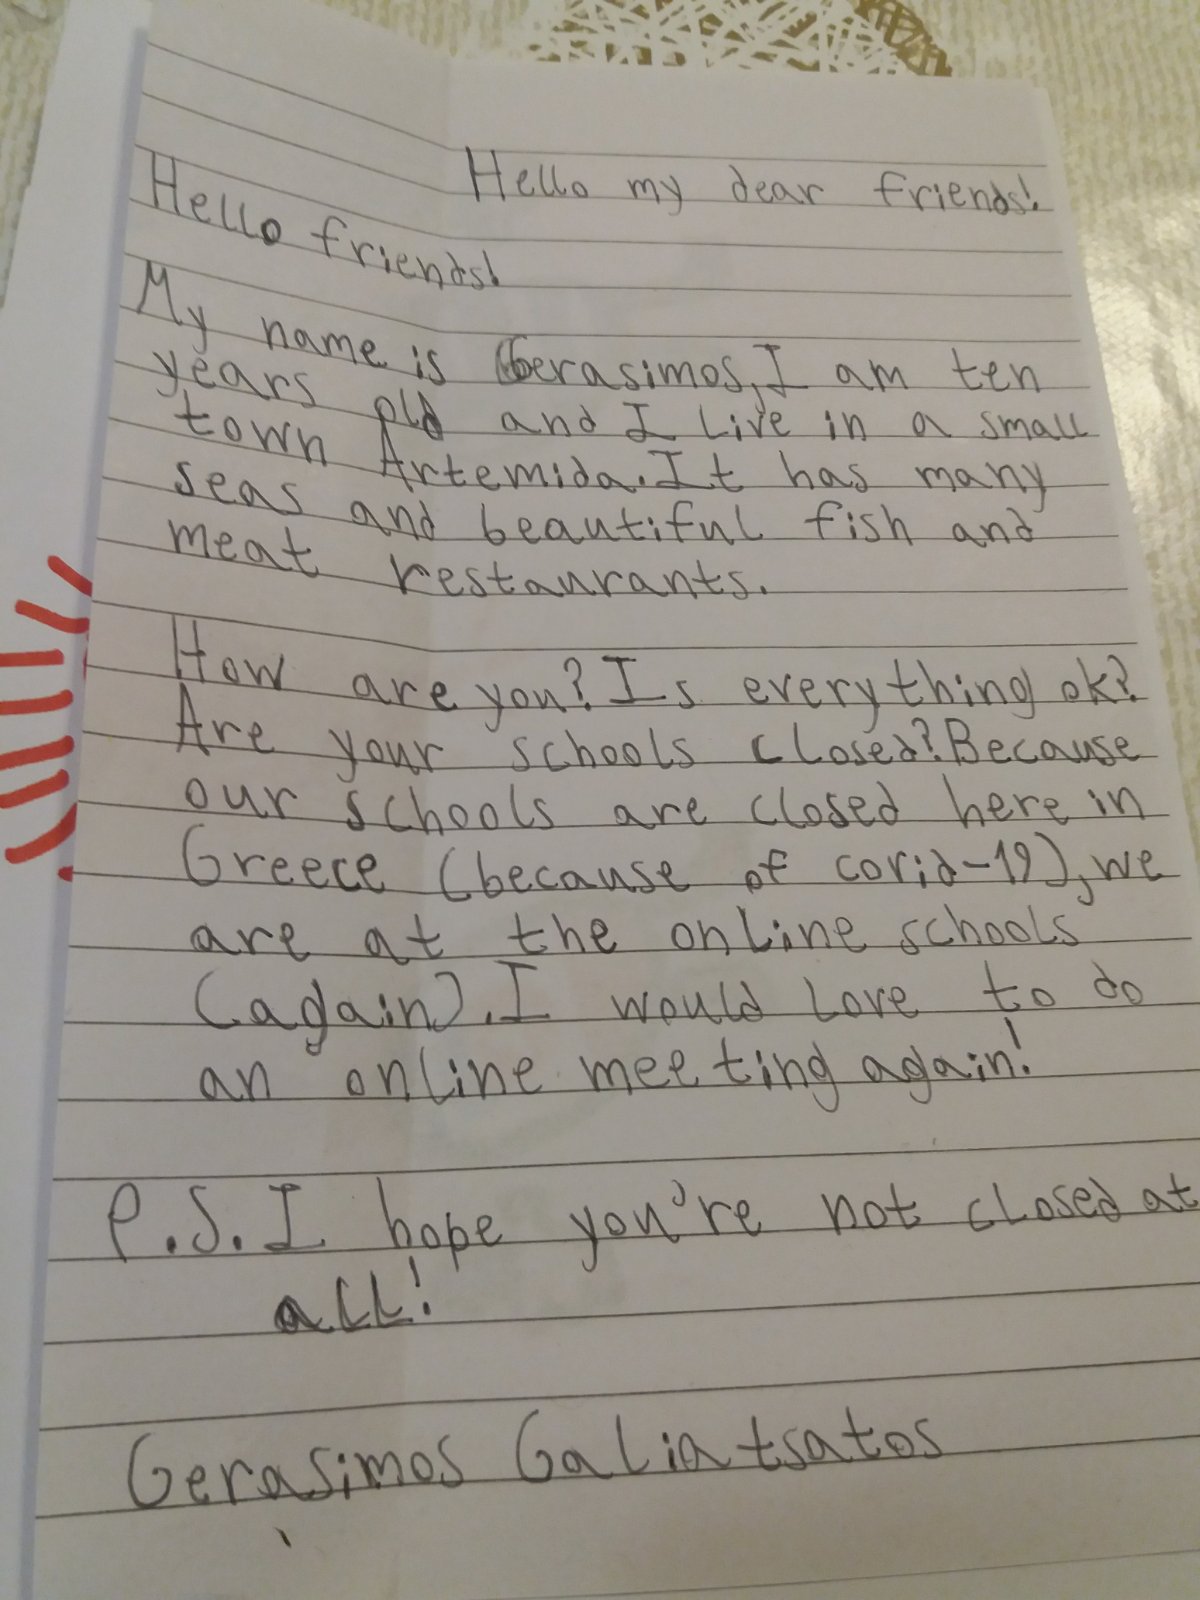 Hello my dear friends!
Hello friends!
My name is Gerasimos, I am ten
years old and I live in a small
town Artemida. It has many
seas and beautiful fish and
meat restaurants.
How are you? Is everything ok?
Are your schools closed? Because
our schools are closed here in
Greece (because of covid-19), we
are at the online schools
(again). I would love to do
an online meeting again!
P.S. I hope you're not closed at
all!
Gerasimos Galiatsatos